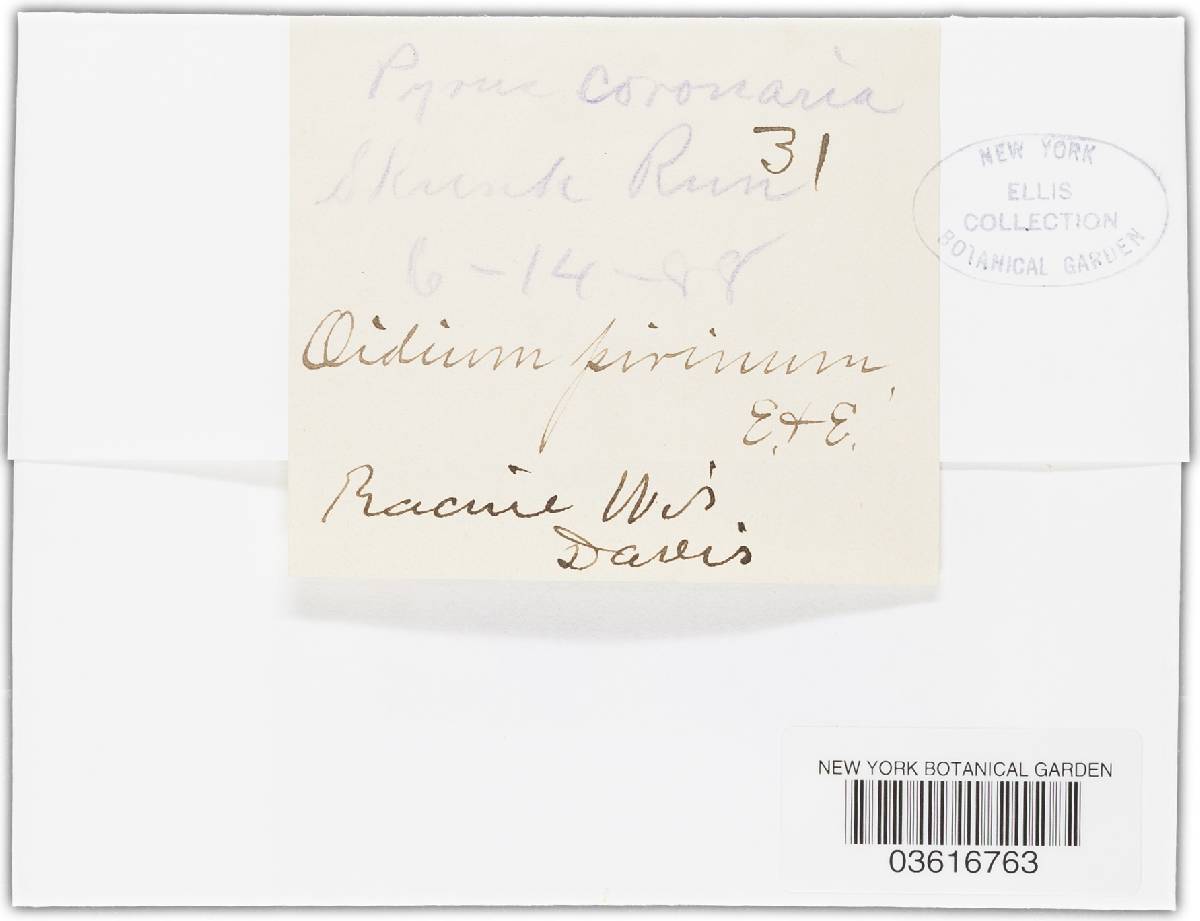 Pyrus coronaria
31
Skunk Run
6-14-88
Oidium pirinum,
E. & E.
Racine Wis
Davis
NEW YORK
ELLIS
COLLECTION
BOTANICAL GARDEN
NEW YORK BOTANICAL GARDEN
03616763